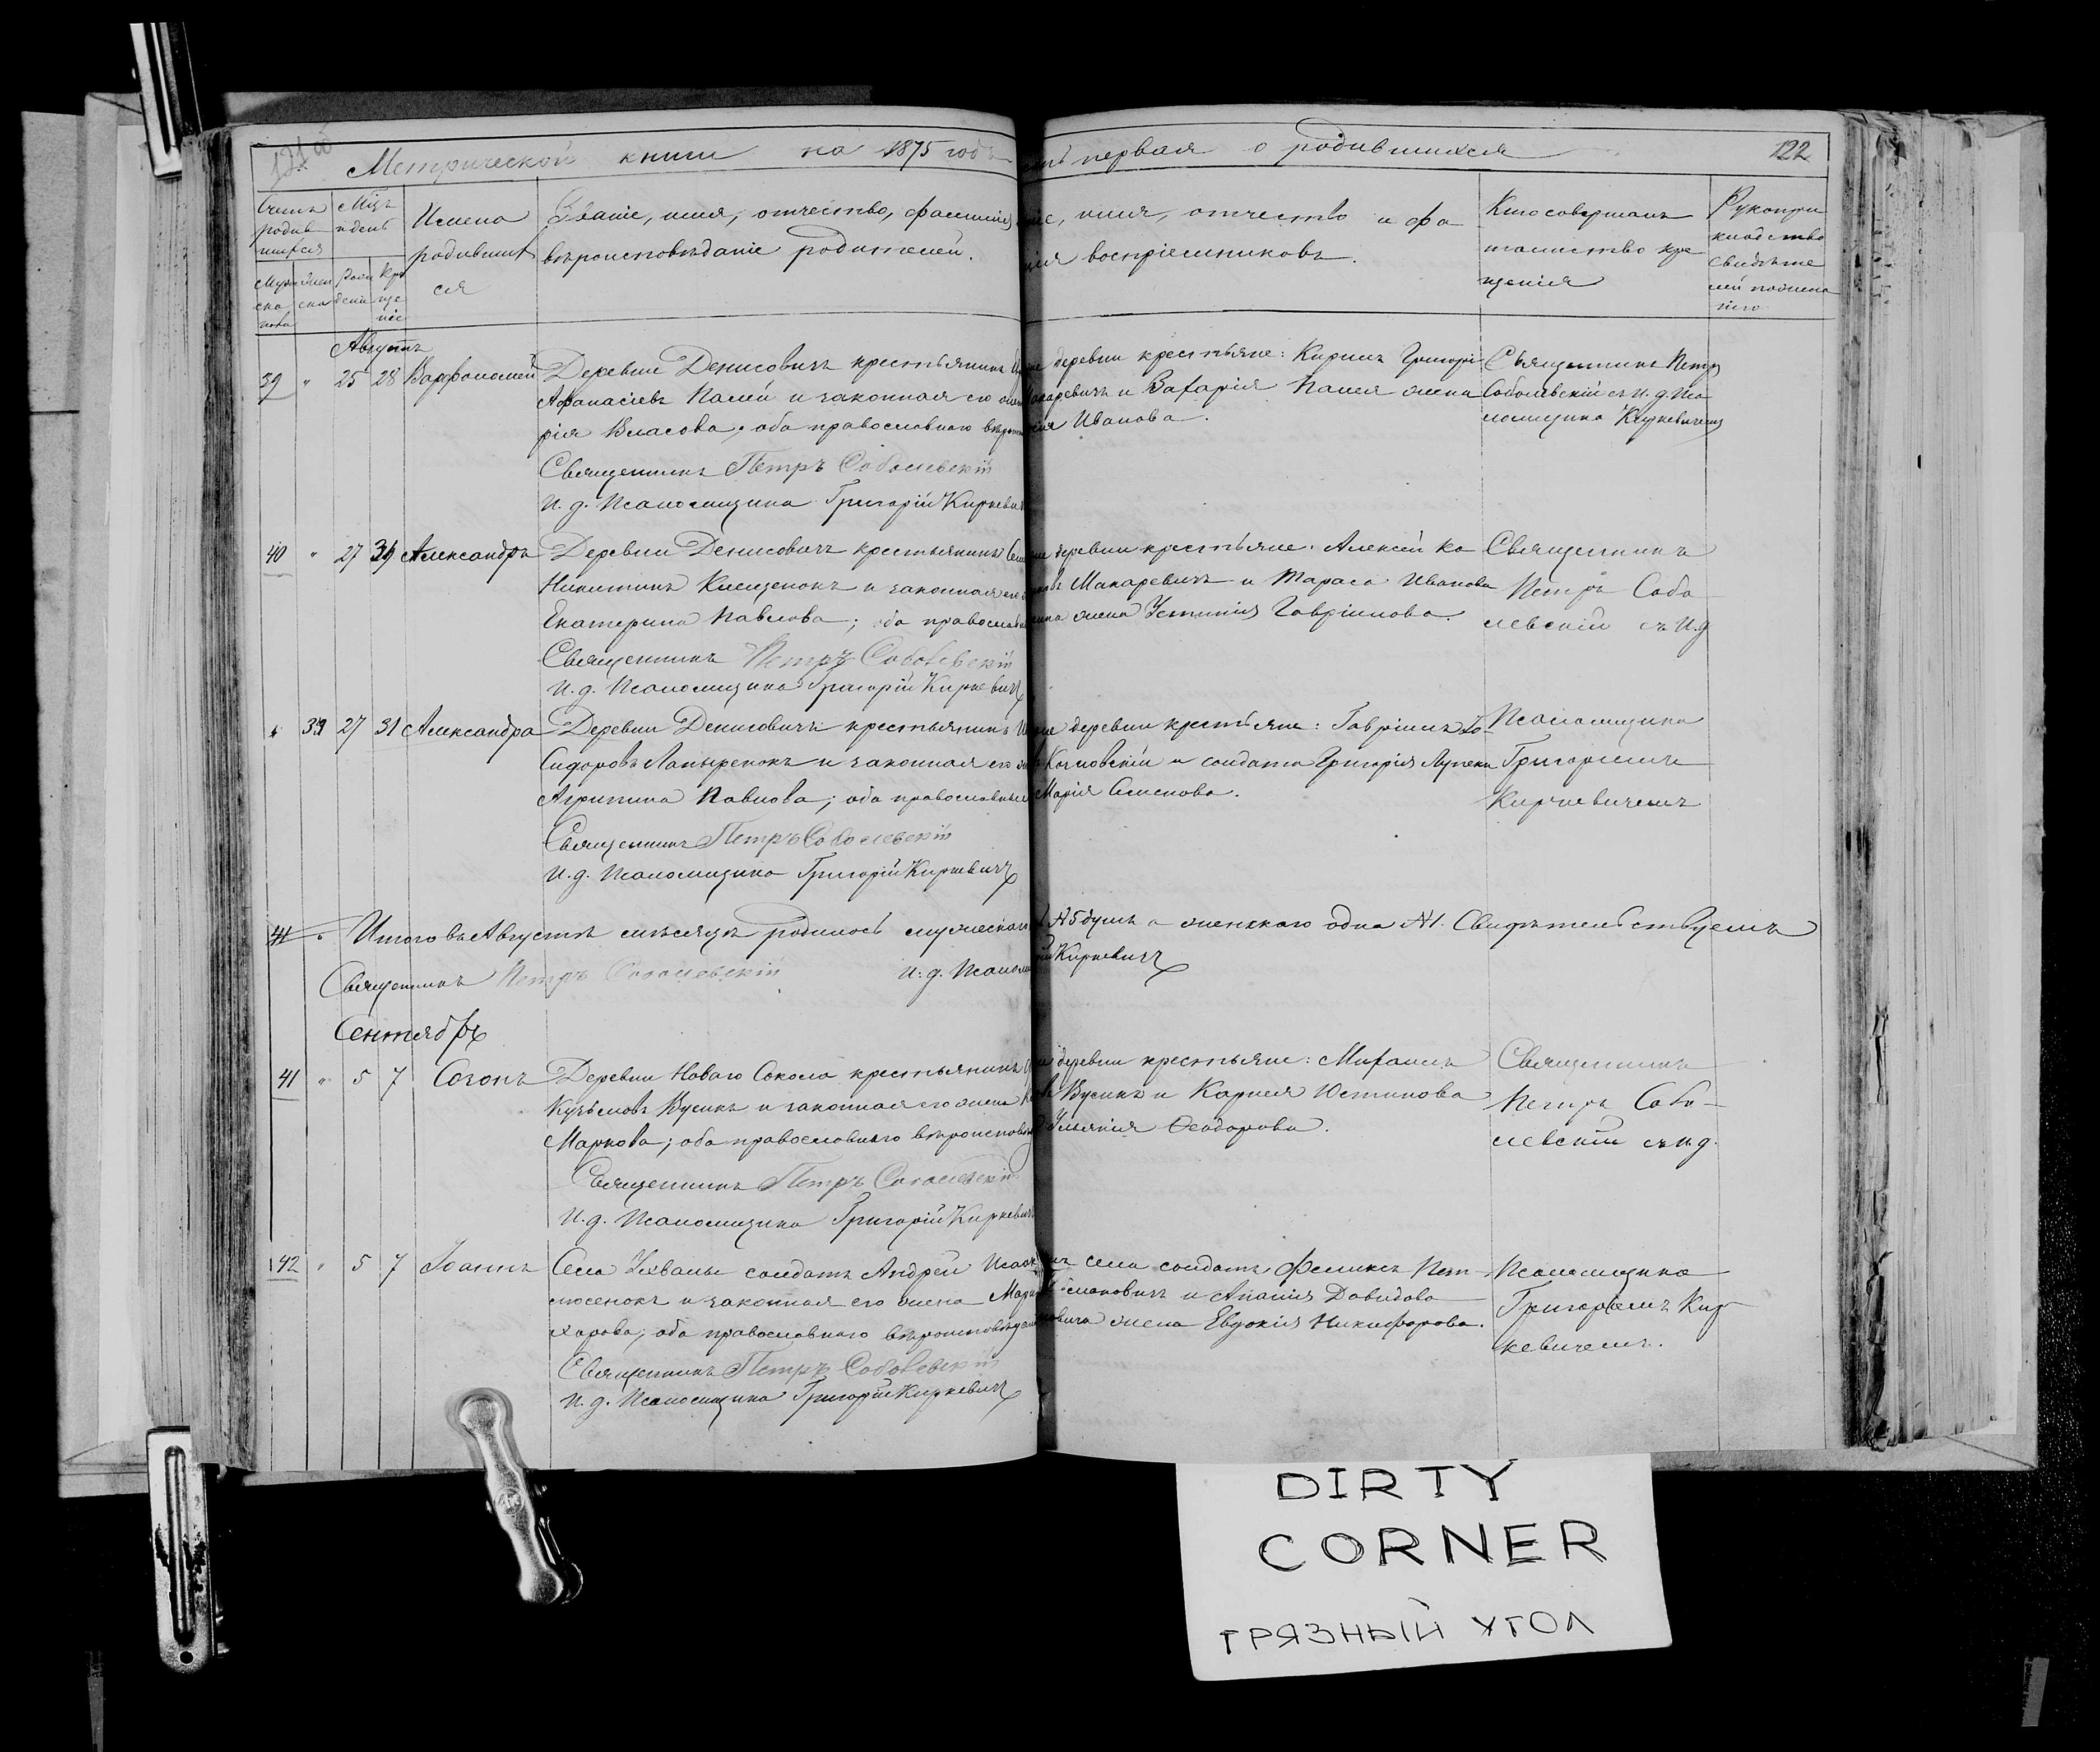 Метрической книги на 1875 годъ
первая о родившихся
122
Счетъ родив шихся
Мцъ и день
Имена родивших ся
Званіе, имя, отчество, фамилія
вѣроисповѣданіе родителей.
имя, отчество и фа
воспріемниковъ.
Кто совершалъ
таинство кре
щенія
Рукопри
кладство
свидѣте
лей
Августъ
39 " 25 28 Варфоломей
Деревни Денисовичъ крестьянинъ
Афанасіевъ Палей и законная его
рія Власова; оба православнаго
Священникъ Петръ Соболевскій
И. д. Псаломщика Григорій Киркевичъ
деревни крестьяне: Кирилъ Григорі
и Захарія Палея жена
Иванова.
Священникъ Петръ
Соболевскій съ и. д. Пса
ломщика Киркевичемъ
40 " 27 31 Александръ
Деревни Денисовичъ крестьянинъ
Никитинъ Клещенокъ и законная его
Екатерина Павлова; оба православн
Священникъ Петръ Соболевскій
И. д. Псаломщика Григорій Киркевичъ
деревни крестьяне: Алексей Ка
Макаревичъ и Тараса Иванова
жена Устинія Гавріилова.
Священникъ
Петръ Собо
левскій съ И. д
39 27 31 Александра
Деревни Денисовичъ крестьянинъ
Сидоровъ Лапыренокъ и законная его
Агрипина Павлова; оба православные
Священникъ Петръ Соболевскій
И. д. Псаломщика Григорій Киркевичъ
деревни крестьяне: Гавріилъ
и солдата Григорія
Марія Семенова.
Псаломщика
Григоріемъ
Киркевичемъ
41 " Итого въ Августѣ мѣсяцѣ родилось мужескаго
№ 5 душъ а женскаго одна №1. Свидѣтельствуемъ
Священникъ Петръ Соболевскій И. д. Псалом
Киркевичъ
Сентябрь
41 " 5 7 Созонъ
Деревни Новаго Сокола крестьянинъ
Кузьмовъ Бусинъ и законная его жена
Маркова; оба православнаго вѣроисповѣд
Священникъ Петръ Соболевскій
И. д. Псаломщика Григорій Киркевичъ
деревни крестьяне: Михаилъ
Бусинъ и Карнея Юстинова
Ульянія Ѳеодорова.
Священникъ
Петръ Собо-
левскій съ и. д.
42 " 5 7 Іоаннъ
Села Ухвалы солдатъ Андрей Исаак
и законная его жена Марія
харова; оба православнаго вѣроисповѣдан
Священникъ Петръ Соболевскій
И. д. Псаломщика Григорій Киркевичъ
села солдатъ Феликсъ Пет-
и Ананія Давидова
жена Евдокія Никифорова.
Псаломщика
Григоріемъ Кир-
кевичемъ.
DIRTY
CORNER
ГРЯЗНЫЙ УГОЛ